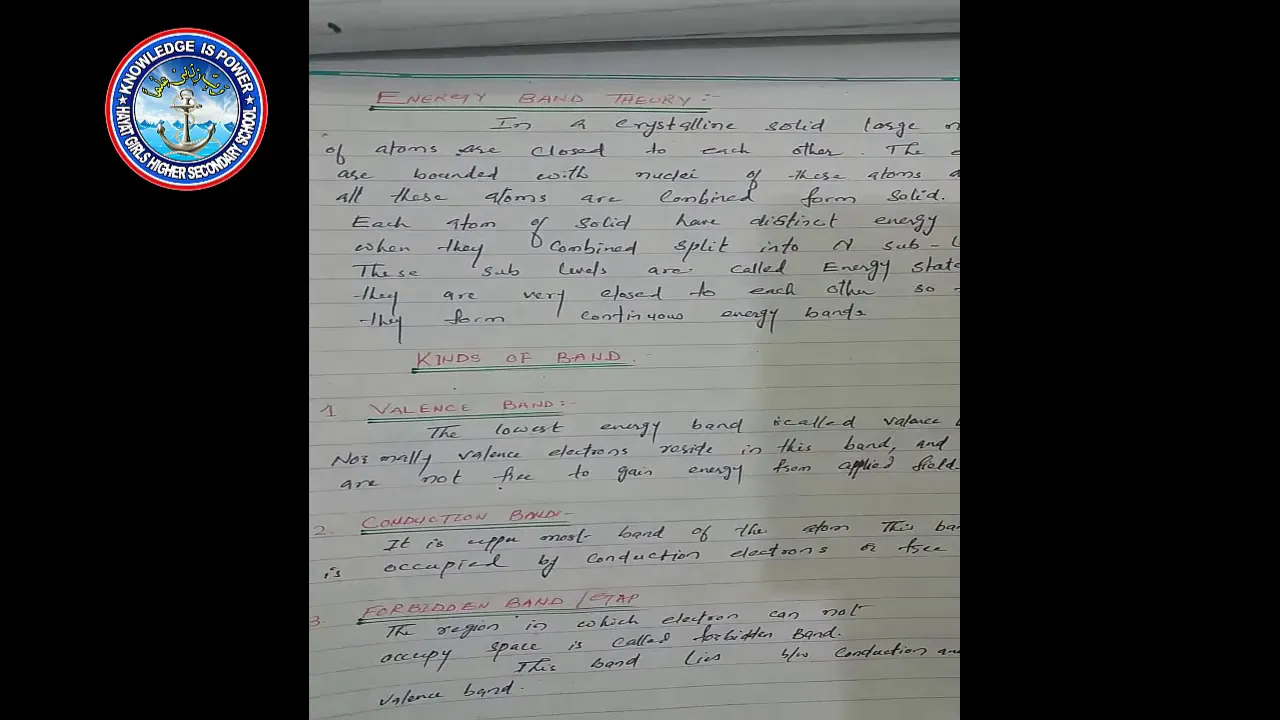 KNOWLEDGE IS POWER
رَبِّ زِدْنِي عِلْمًا
HAYAT GIRLS HIGHER SECONDARY SCHOOL
ENERGY BAND THEORY:-
In a crystalline solid large
of atoms are closed to each other. The
are bounded with nuclei of these atoms
all these atoms are combined form solid.
Each atom of solid have distinct energy
when they combined split into N sub-
These sub levels are called Energy state
they are very closed to each other so
they form continuous energy bands
KINDS OF BAND :-
1 VALENCE BAND:-
The lowest energy band is called valence
Normally valence electrons reside in this band, and
are not free to gain energy from applied field
2. CONDUCTION BAND:-
It is upper most band of the atom This ban
is occupied by conduction electrons or free
3. FORBIDDEN BAND/GAP
The region in which electron can not
occupy space is called forbidden Band.
This Band lies b/w conduction and
valence band.